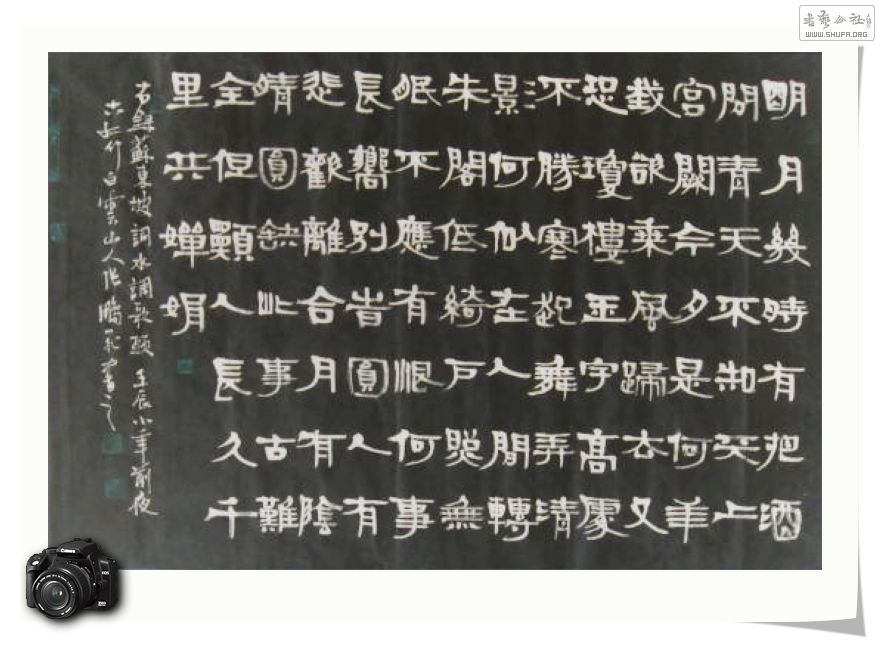 明月幾時有把酒
問青天不知天上
宮闕今夕是何年
我欲乘風歸去又
恐瓊樓玉宇高處
不勝寒起舞弄清
影何似在人間轉
朱閣低綺戶照無
眠不應有恨何事
長嚮別時圓人有
悲歡離合月有陰
晴圓缺此事古難
全但願人長久千
里共嬋娟
右錄蘇東坡詞水調歌頭壬辰小年前夜
白雲山人張鵬飛書之
书艺公社
WWW.SHUFA.ORG
Canon
EOS